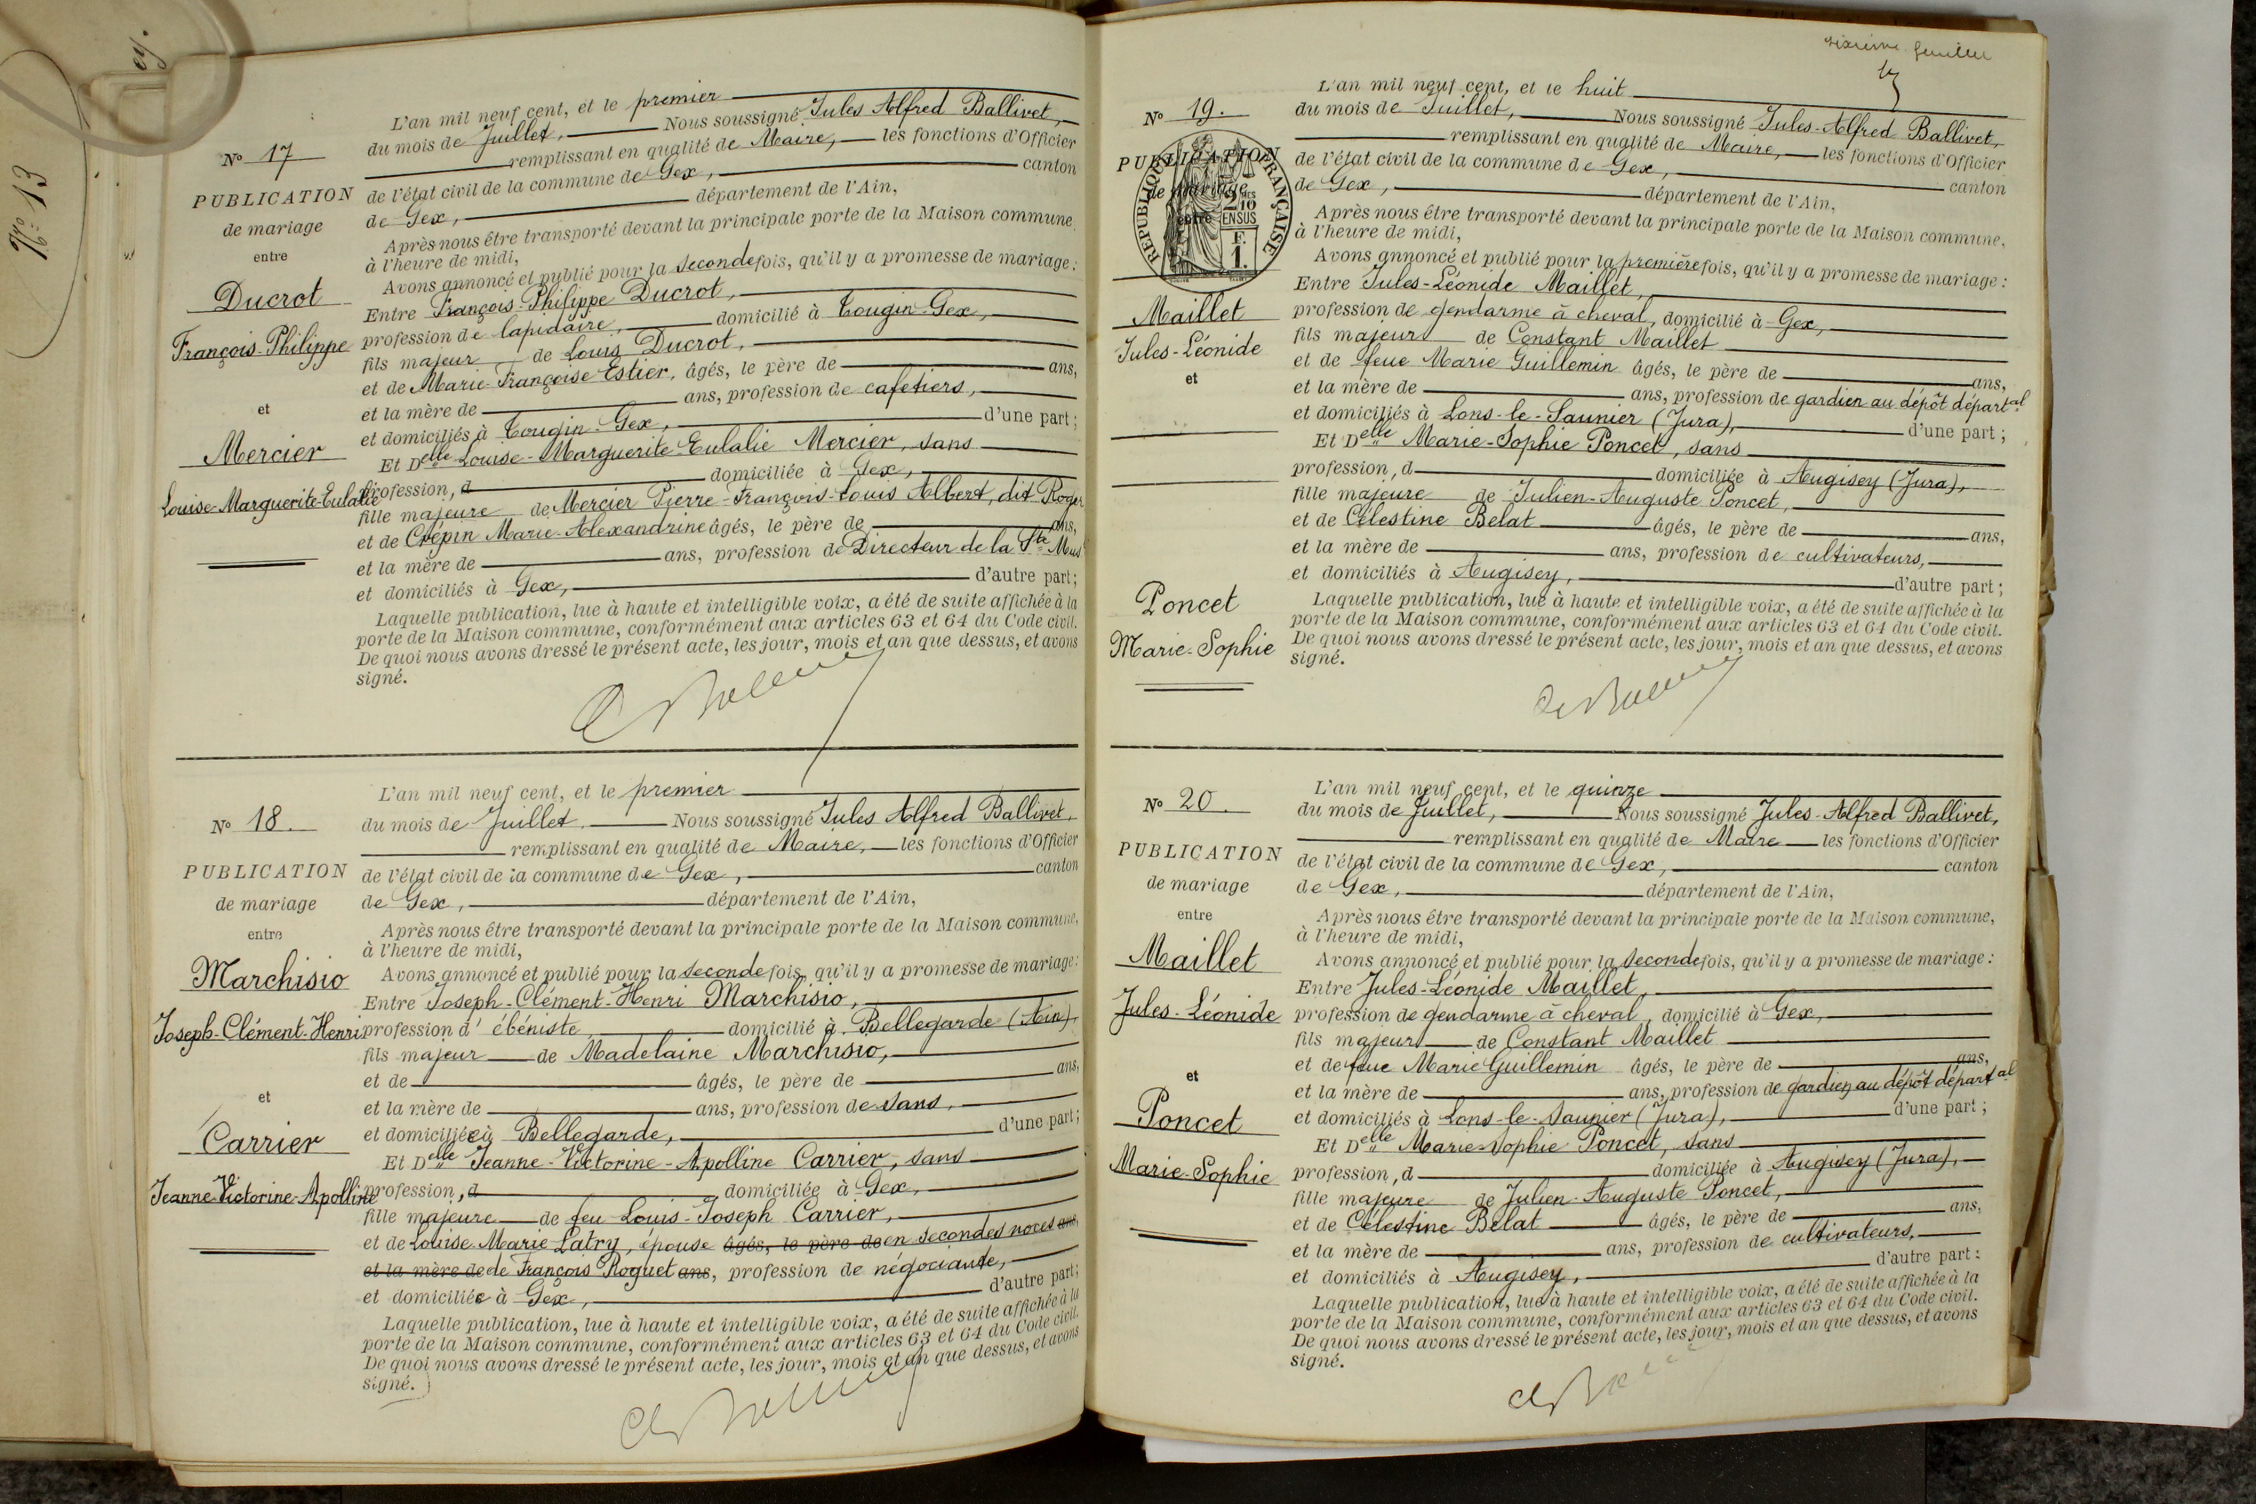 ey.
N° 13
N° 17
PUBLICATION
de mariage
entre
Ducrot
François-Philippe
et
Mercier
Louise-Marguerite-Eulalie
L'an mil neuf cent, et le premier
du mois de Juillet, Nous soussigné Jules Alfred Ballivet,
remplissant en qualité de Maire, les fonctions d'Officier
de l'état civil de la commune de Gex, canton
de Gex, département de l'Ain,
Après nous être transporté devant la principale porte de la Maison commune,
à l'heure de midi,
Avons annoncé et publié pour la seconde fois, qu'il y a promesse de mariage:
Entre François-Philippe Ducrot,
profession de lapidaire, domicilié à Tougin-Gex,
fils majeur de Louis Ducrot,
et de Marie-Françoise Estier, âgés, le père de ans,
et la mère de ans, profession de cafetiers,
et domiciliés à Tougin-Gex, d'une part;
Et Delle Louise-Marguerite-Eulalie Mercier, sans
profession, d domiciliée à Gex,
fille majeure de Mercier Pierre-François-Louis Albert, dit Roger
et de Crépin Marie-Alexandrine âgés, le père de ans,
et la mère de ans, profession de Directeur de la Sté Mus
et domiciliés à Gex, d'autre part;
Laquelle publication, lue à haute et intelligible voix, a été de suite affichée à la
porte de la Maison commune, conformément aux articles 63 et 64 du Code civil.
De quoi nous avons dressé le présent acte, les jour, mois et an que dessus, et avons
signé.
N° 18.
PUBLICATION
de mariage
entre
Marchisio
Joseph-Clément-Henri
et
Carrier
Jeanne-Victorine-Apolline
L'an mil neuf cent, et le premier
du mois de Juillet. Nous soussigné Jules Alfred Ballivet,
remplissant en qualité de Maire, les fonctions d'Officier
de l'état civil de la commune de Gex, canton
de Gex, département de l'Ain,
Après nous être transporté devant la principale porte de la Maison commune,
à l'heure de midi,
Avons annoncé et publié pour la seconde fois, qu'il y a promesse de mariage:
Entre Joseph-Clément-Henri Marchisio,
profession d'ébéniste, domicilié à Bellegarde (Ain),
fils majeur de Madelaine Marchisio,
et de âgés, le père de ans,
et la mère de ans, profession de sans,
et domiciliée à Bellegarde, d'une part;
Et Delle Jeanne-Victorine-Apolline Carrier, sans
profession, d domiciliée à Gex,
fille majeure de feu Louis-Joseph Carrier,
et de Louise Marie Latry, épouse âgés, le père de en secondes noces ans,
et la mère de de François Roguet ans, profession de négociante,
et domiciliée à Gex, d'autre part;
Laquelle publication, lue à haute et intelligible voix, a été de suite affichée à la
porte de la Maison commune, conformément aux articles 63 et 64 du Code civil.
De quoi nous avons dressé le présent acte, les jour, mois et an que dessus, et avons
signé.
sixième feuillet
N° 19.
PUBLICATION
de mariage
entre
RÉPUBLIQUE FRANÇAISE
2 DES
10
EN SUS
F.
1.
Maillet
Jules-Léonide
et
Poncet
Marie-Sophie
L'an mil neuf cent, et le huit
du mois de Juillet, Nous soussigné Jules-Alfred Ballivet,
remplissant en qualité de Maire, les fonctions d'Officier
de l'état civil de la commune de Gex, canton
de Gex, département de l'Ain,
Après nous être transporté devant la principale porte de la Maison commune,
à l'heure de midi,
Avons annoncé et publié pour la première fois, qu'il y a promesse de mariage:
Entre Jules-Léonide Maillet,
profession de gendarme à cheval, domicilié à Gex,
fils majeur de Constant Maillet
et de feue Marie Guillemin âgés, le père de ans,
et la mère de ans, profession de gardien au dépôt départal
et domiciliés à Lons-le-Saunier (Jura), d'une part;
Et Delle Marie-Sophie Poncet, sans
profession, d domiciliée à Augisey (Jura),
fille majeure de Julien-Auguste Poncet,
et de Célestine Belat âgés, le père de ans,
et la mère de ans, profession de cultivateurs,
et domiciliés à Augisey, d'autre part;
Laquelle publication, lue à haute et intelligible voix, a été de suite affichée à la
porte de la Maison commune, conformément aux articles 63 et 64 du Code civil.
De quoi nous avons dressé le présent acte, les jour, mois et an que dessus, et avons
signé.
N° 20.
PUBLICATION
de mariage
entre
Maillet
Jules-Léonide
et
Poncet
Marie-Sophie
L'an mil neuf cent, et le quinze
du mois de Juillet, Nous soussigné Jules-Alfred Ballivet,
remplissant en qualité de Maire les fonctions d'Officier
de l'état civil de la commune de Gex, canton
de Gex, département de l'Ain,
Après nous être transporté devant la principale porte de la Maison commune,
à l'heure de midi,
Avons annoncé et publié pour la seconde fois, qu'il y a promesse de mariage:
Entre Jules-Léonide Maillet,
profession de gendarme à cheval, domicilié à Gex,
fils majeur de Constant Maillet
et de feue Marie Guillemin âgés, le père de ans,
et la mère de ans, profession de gardien au dépôt départal
et domiciliés à Lons-le-Saunier (Jura), d'une part;
Et Delle Marie-Sophie Poncet, sans
profession, d domiciliée à Augisey (Jura),
fille majeure de Julien-Auguste Poncet,
et de Célestine Belat âgés, le père de ans,
et la mère de ans, profession de cultivateurs,
et domiciliés à Augisey, d'autre part:
Laquelle publication, lue à haute et intelligible voix, a été de suite affichée à la
porte de la Maison commune, conformément aux articles 63 et 64 du Code civil.
De quoi nous avons dressé le présent acte, les jour, mois et an que dessus, et avons
signé.